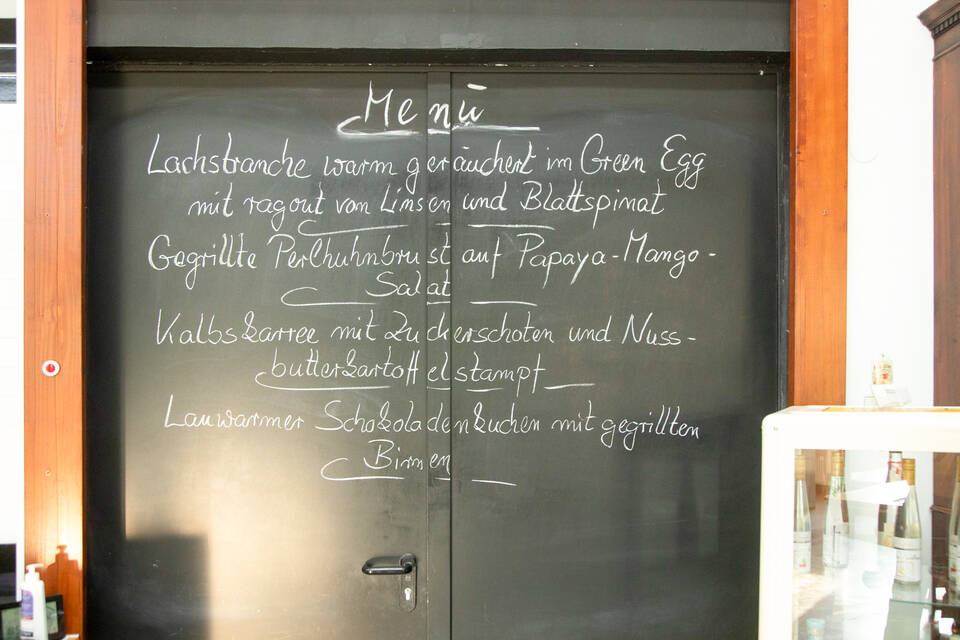 Menü
Lachstranche warm geräuchert im Green Egg
mit ragout von Linsen und Blattspinat
Gegrillte Perlhuhnbrust auf Papaya-Mango-
Salat
Kalbskarree mit Zuckerschoten und Nuss-
butterkartoffelstampf
Lauwarmer Schokoladenkuchen mit gegrillten
Birnen